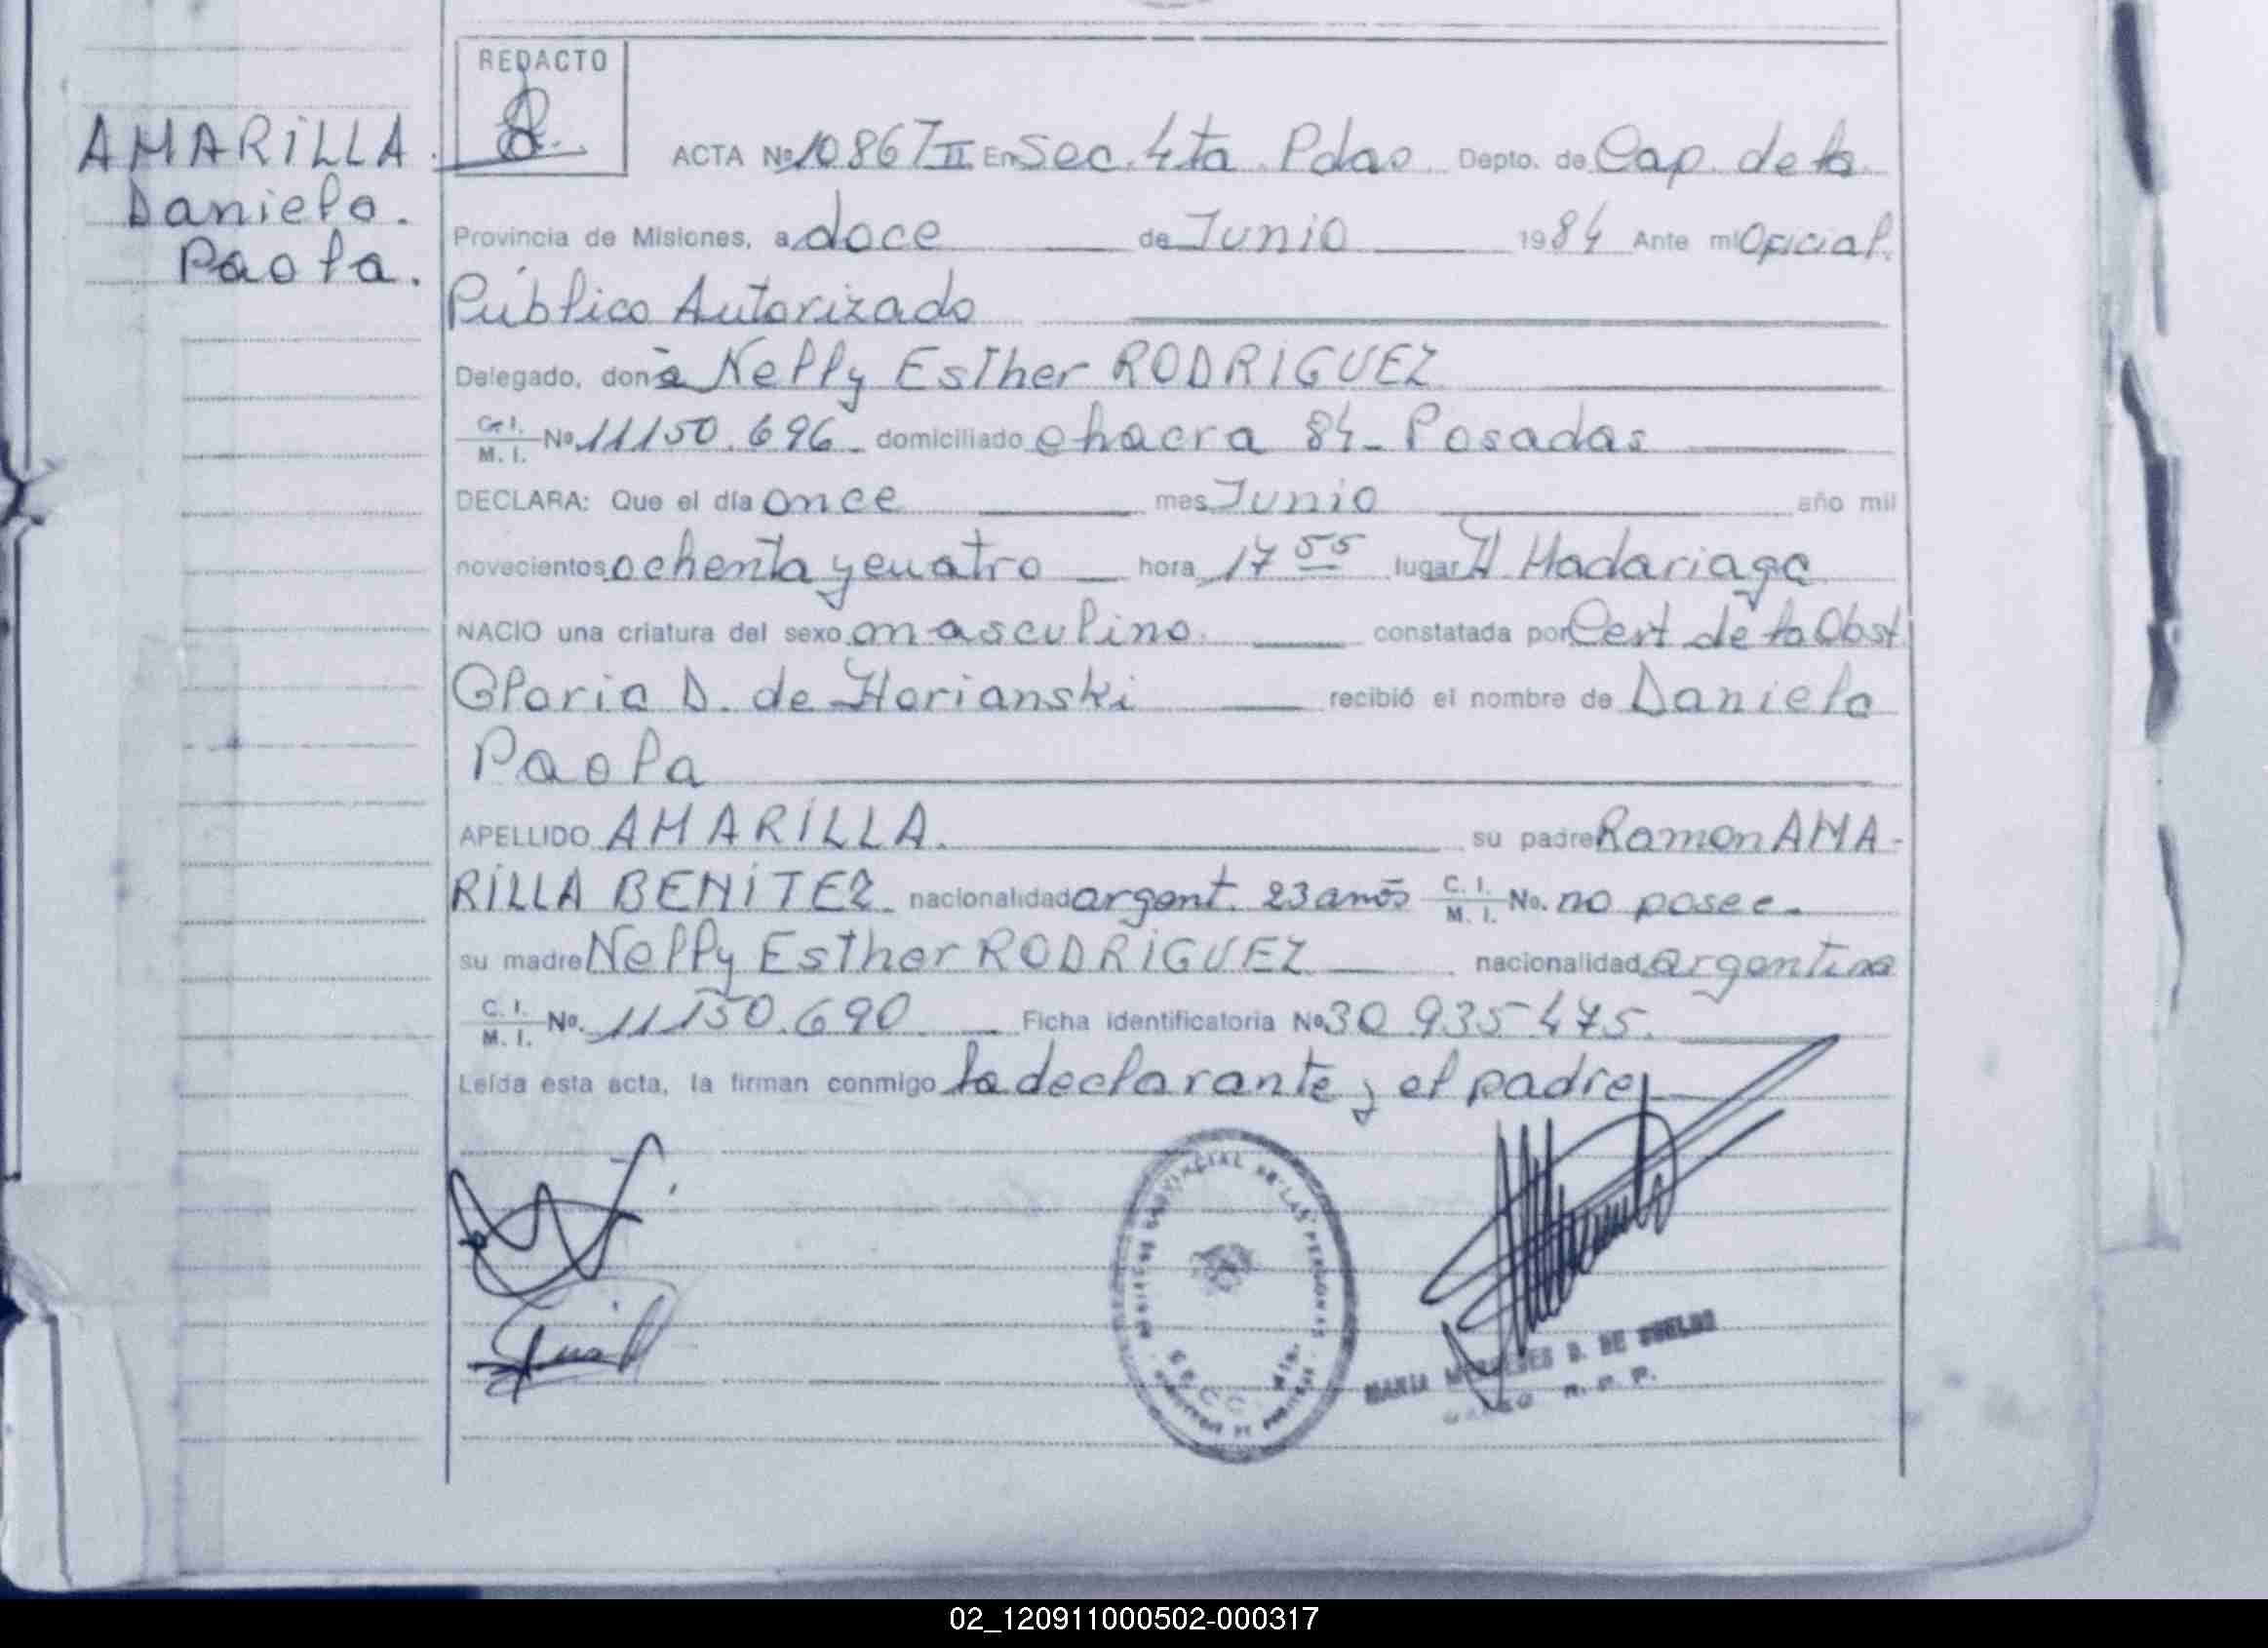 REDACTO
AMARILLA
Daniela.
Paola.
ACTA Nº 10867 II En Sec. 4ta Pdas Depto. de Cap. de la
Provincia de Misiones, a doce de Junio 1984 Ante mi Oficial
Público Autorizado
Delegado, doña Nelly Esther RODRIGUEZ
C. I. M. I. Nº 11150.696 domiciliado chacra 84 - Posadas
DECLARA: Que el día once mes Junio año mil
novecientos ochenta y cuatro hora 17 55 lugar H Madariaga
NACIO una criatura del sexo masculino. constatada por Cert de la Obst
Gloria D. de Horianski recibió el nombre de Daniela
Paola
APELLIDO AMARILLA. su padre Ramon AMA-
RILLA BENITEZ nacionalidad argent. 23 años C. I. M. I. No. no posee.
su madre Nelly Esther RODRIGUEZ nacionalidad argentina
C. I. M. I. No. 11150.690 Ficha identificatoria Nº 30 935 475.
Leída esta acta, la firman conmigo la declarante y el padre
PROVINCIAL DE LAS PERSONAS
MARIA D. DE
R. P. P.
02_120911000502-000317